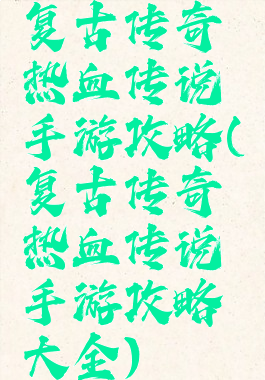 复古传奇
热血传说
手游攻略(
复古传奇
热血传说
手游攻略
大全)